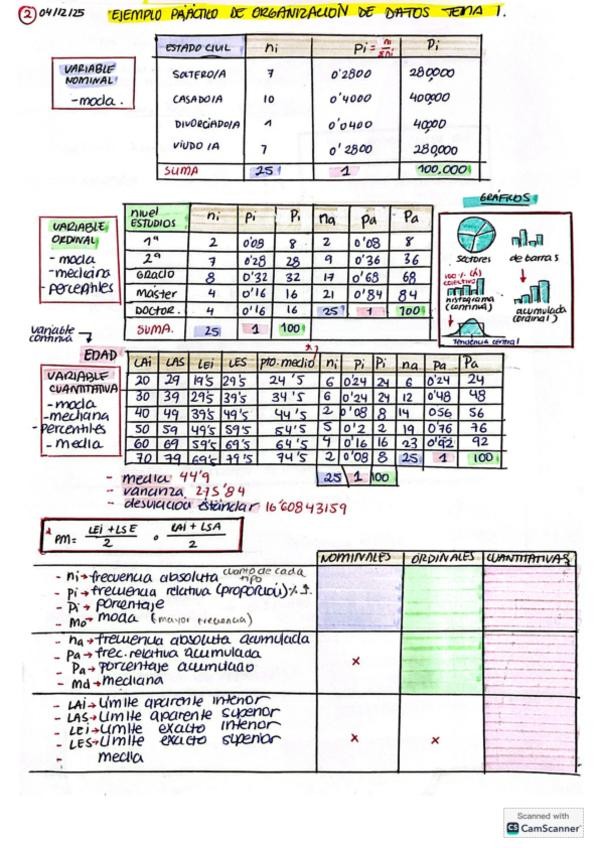 ② 04/12/25 EJEMPLO PRÁCTICO DE ORGANIZACIÓN DE DATOS TEMA 1.
VARIABLE NOMINAL:
- moda.
ESTADO CIVIL ni pi = ni/Σni Pi
SOLTERO/A 7 0'2800 280,000
CASADO/A 10 0'4000 400,000
DIVORCIADO/A 1 0'0400 40,000
VIUDO/A 7 0'2800 280,000
SUMA 25 1 100,000
VARIABLE ORDINAL
- moda
- mediana
- percentiles
nivel ESTUDIOS ni Pi Pi na pa Pa
1º 2 0'08 8 2 0'08 8
2º 7 0'28 28 9 0'36 36
GRADO 8 0'32 32 17 0'68 68
Máster 4 0'16 16 21 0'84 84
DOCTOR. 4 0'16 16 25 1 100
SUMA. 25 1 100
GRÁFICOS
sectores de barras
histograma (continua)
acumulada (ordinal)
Tendencia central
variable continua
EDAD
VARIABLE CUANTITATIVA
- moda
- mediana
- percentiles
- media
LAi LAS LEi LES pto.medio ni Pi Pi na pa Pa
20 29 19'5 29'5 24'5 6 0'24 24 6 0'24 24
30 39 29'5 39'5 34'5 6 0'24 24 12 0'48 48
40 49 39'5 49'5 44'5 2 0'08 8 14 056 56
50 59 49'5 59'5 54'5 5 0'2 2 19 0'76 76
60 69 59'5 69'5 64'5 4 0'16 16 23 0'92 92
70 79 69'5 79'5 74'5 2 0'08 8 25 1 100
25 1 100
- media 44'9
- varianza 275'84
- desviación estándar 16'60843159
* PM= LEi+LSE/2 o LAi+LSA/2
NOMINALES ORDINALES CUANTITATIVAS
- ni→frecuencia absoluta cuanto de cada tipo
- pi→ frecuencia relativa (proporción)
- Pi→ porcentaje
- Mo→ moda (mayor frecuencia)
- na→frecuencia absoluta acumulada
- pa→ frec.relativa acumulada
- Pa→ porcentaje acumulado
- Md→mediana
x
- LAi→ Límite aparente inferior
- LAS→Límite aparente superior
- LEi→ límite exacto inferior
- LES→Límite exacto superior
- media
x x
Scanned with
CS CamScanner